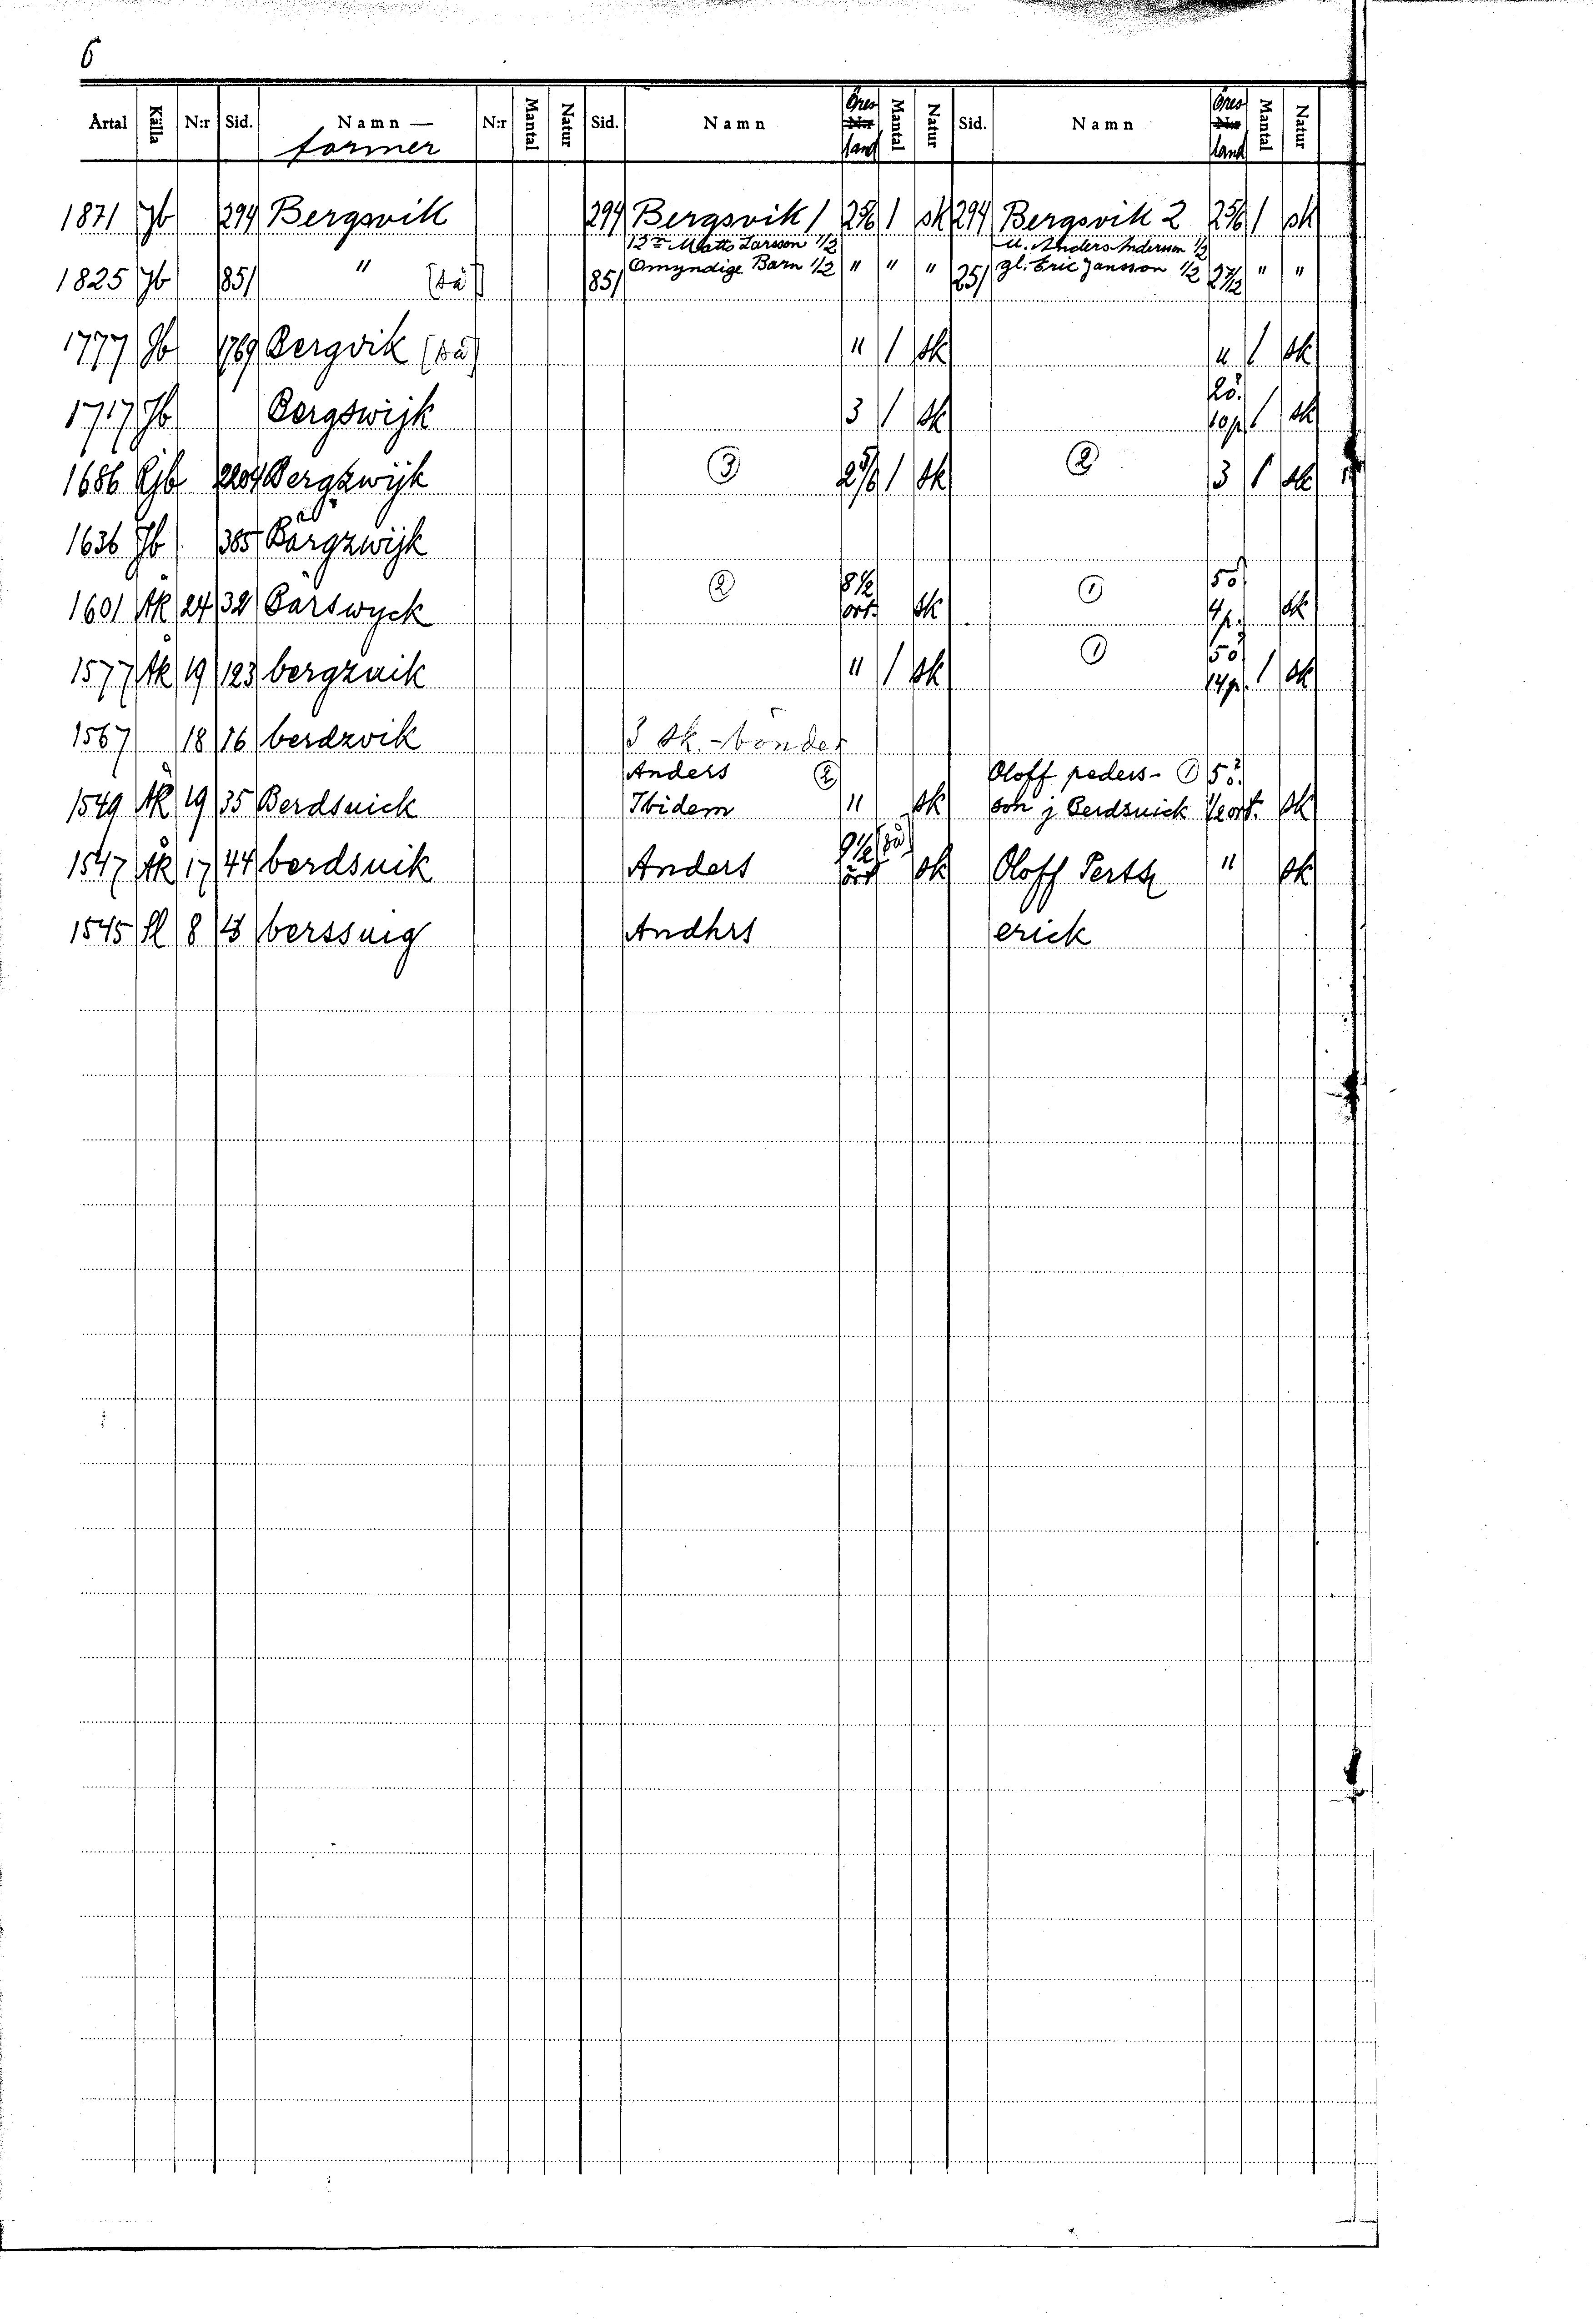 6
Årtal Källa N:r Sid. Namn— former N:r Mantal Natur Sid. Namn Öres land Mantal Natur Sid. Namn Öres land Mantal Natur
1871 Jb 294 Bergsvik 294 Bergsvik 1 2 5/6 1 sk 294 Bergsvik 2 2 5/6 1 sk
Matts Larsson 1/2 Anders Anderson 1/2
1825 Jb 851 " [så] 851 Omyndige Barn 1/2 " " " 251 gl. Eric Jansson 1/2 " "
1777 Jb 1769 Bergvik [så] " 1 sk " 1 sk
1717 Jb Bergswijk 3 1 sk 2ö. 10p. 1 sk
1686 Rjb 2204 Bergzwijk 3 2 5/6 1 sk 2 3 1 sk
1636 Jb 385 Bärgzwijk
1601 Åk 24 32 Bärswyck 2 8 1/2 ört. sk 1 5ö 4p. sk
1577 Åk 19 123 bergzuik " 1 sk 1 5ö 14p. 1 sk
1567 18 16 berdzvik 3 sk.-bönder
Anders 2 Oloff peders- 1 5ö.
1549 Åk 19 35 Berdsuick Ibidem " sk son j Berdsuick 1/2 ört. sk
1547 Åk 17 44 berdsuik Anders 9 1/2 ört [så] sk Oloff Persz " sk
1545 Sl 8 berssuig Andhrs erick